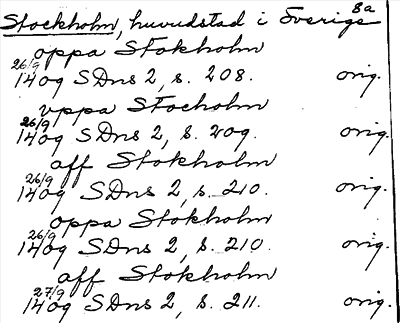 8a
Stockholm, huvudstad i Sverige
oppa Stokholm
26/9
1409 SDns 2, s. 208. orig.
uppa Stocholm
26/9
1409 SDns 2, s. 209. orig.
aff Stokholm
26/9
1409 SDns 2, s. 210. orig.
oppa Stokholm
26/9
1409 SDns 2, s. 210. orig.
aff Stokholm
27/9
1409 SDns 2, s. 211. orig.